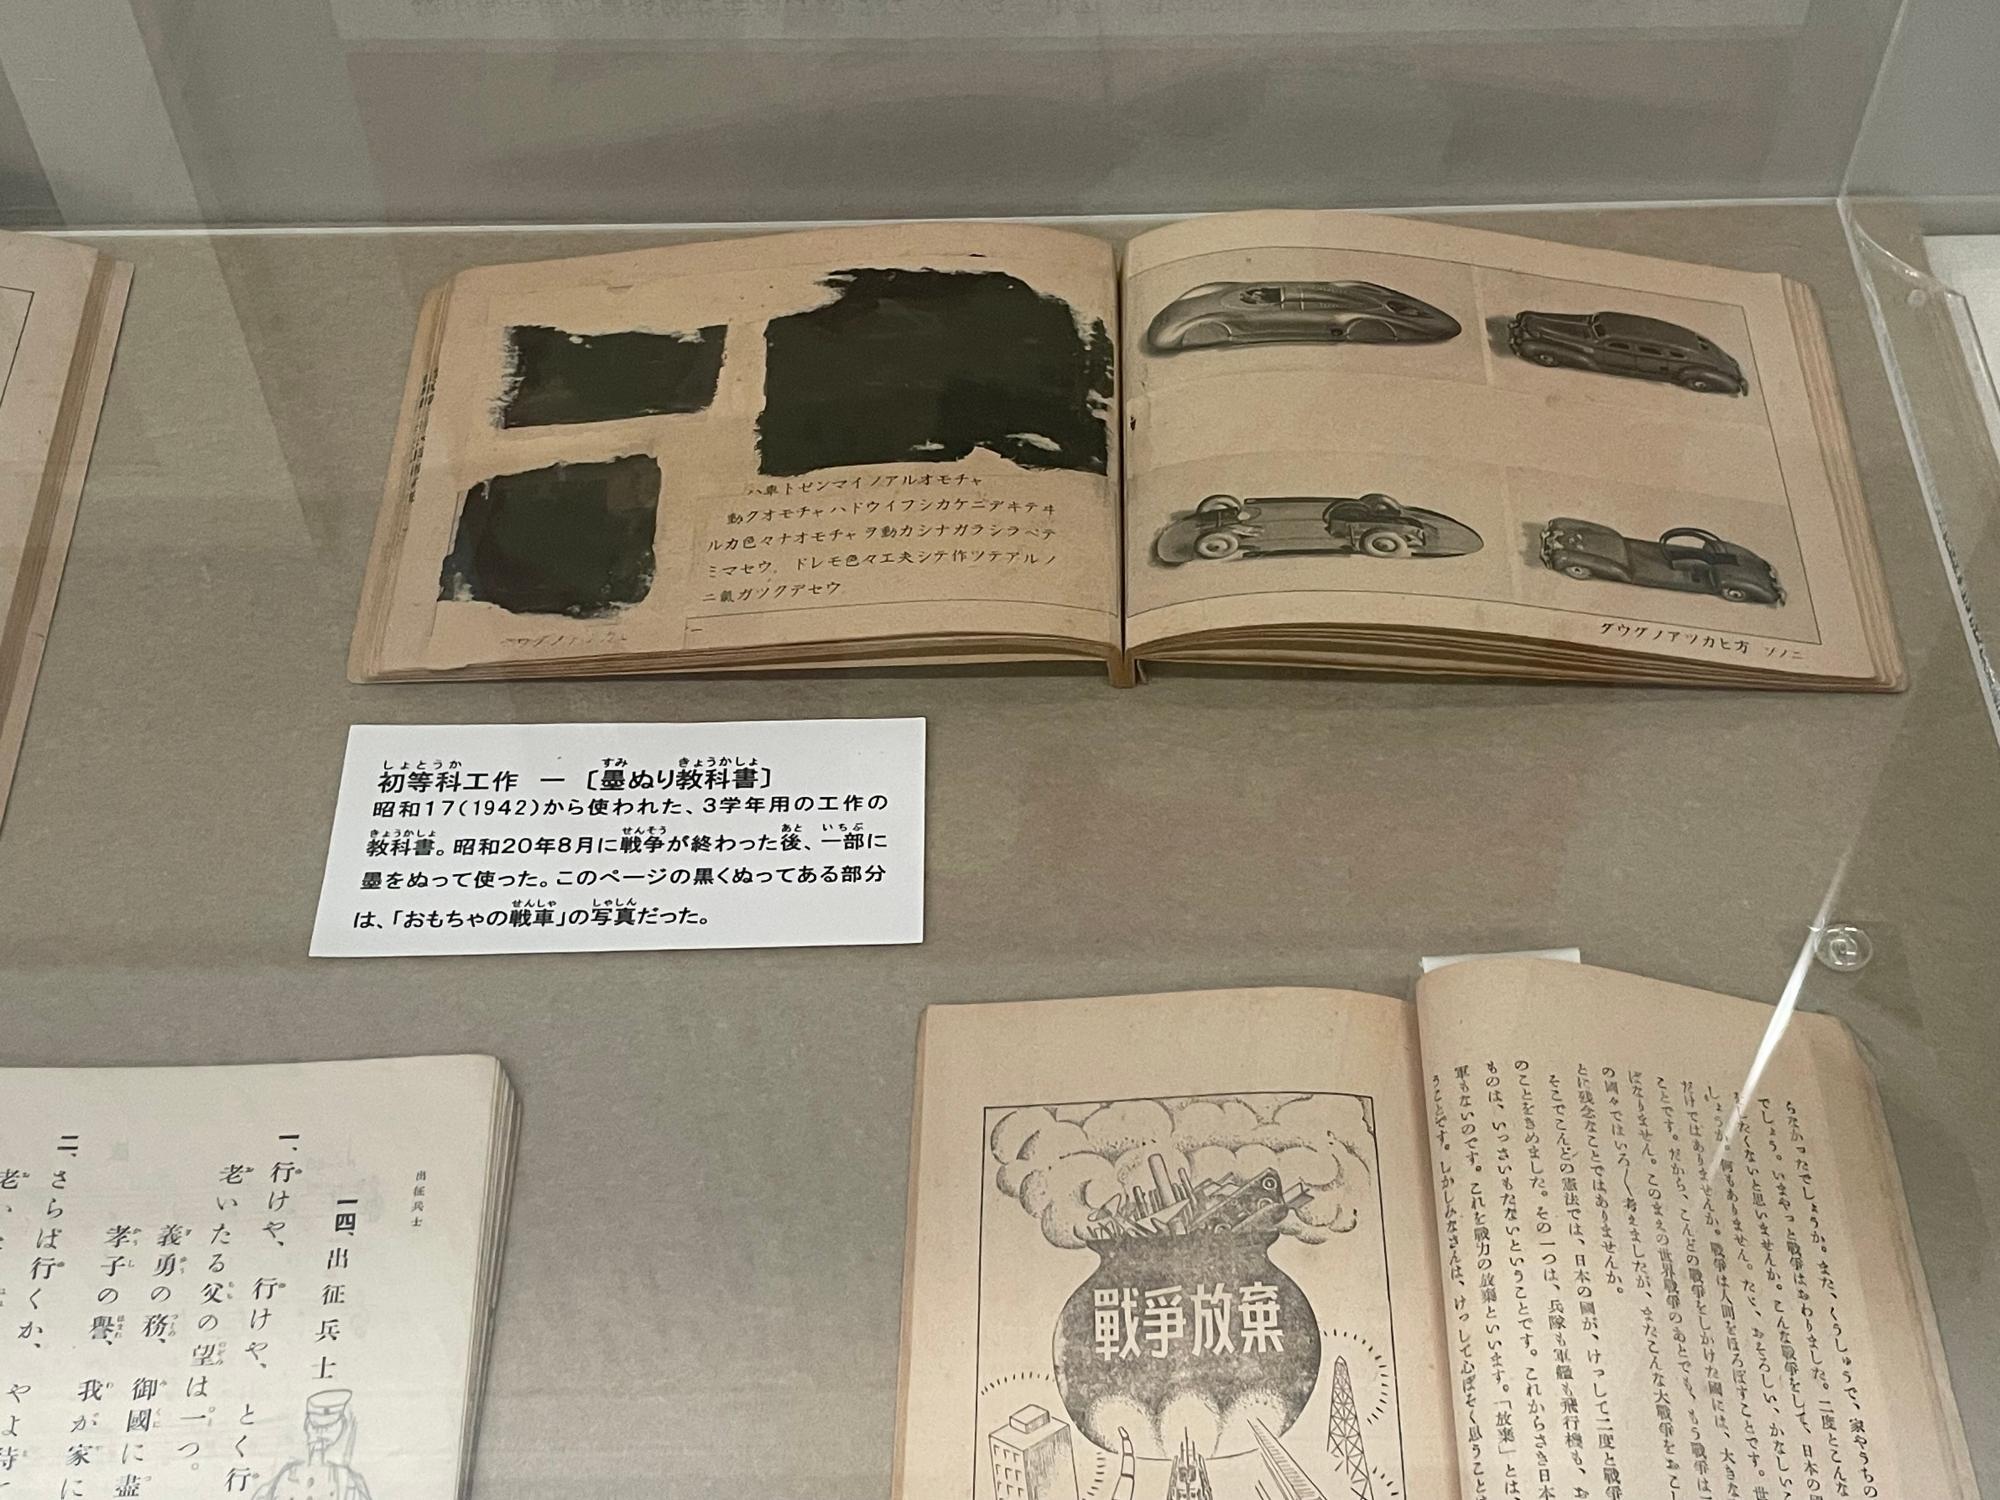 ハ車トゼンマイノアルオモチャ
動クオモチャハドウイフシカケニデキテヰ
ルカ色々ナオモチャヲ動カシナガラシラベテ
ミマセウ。ドレモ色々工夫シテ作ツテアルノ
ニ氣ガツクデセウ
ダウグノアツカヒ方 ソノ二
初等科工作 一 〔墨ぬり教科書〕
昭和17(1942)から使われた、3学年用の工作の
教科書。昭和20年8月に戦争が終わった後、一部に
墨をぬって使った。このページの黒くぬってある部分
は、「おもちゃの戦車」の写真だった。
出征兵士
一四、出征兵士
一、行けや、行けや、とく行
老いたる父の望は一つ。
義勇の務、御國に盡
孝子の譽、我が家に
二、さらば行くか、やよ待
戰爭放棄
らなかったでしょうか。また、くうしゅうで、家やうちの
でしょう。いまやっと戰爭はおわりました。二度とこんな
をしたくないと思いませんか。こんな戰爭をして、日本の國
しょうか。何もありません。ただ、おそろしい、かなしいこ
だけではありませんか。戰爭は人間をほろぼすことです。世
ことです。だから、こんどの戰爭をしかけた國には、大きな
ばなりません。このまえの世界戰爭のあとでも、もう戰爭は
の國々ではいろ〳〵考えましたが、またこんな大戰爭をおこし
とに残念なことではありませんか。
そこでこんどの憲法では、日本の國が、けっして二度と戰爭
のことをきめました。その一つは、兵隊も軍艦も飛行機も、お
ものは、いっさいもたないということです。これからさき日本
軍もないのです。これを戰力の放棄といいます。「放棄」とは、
うことです。しかしみなさんは、けっして心ぼそく思うことは